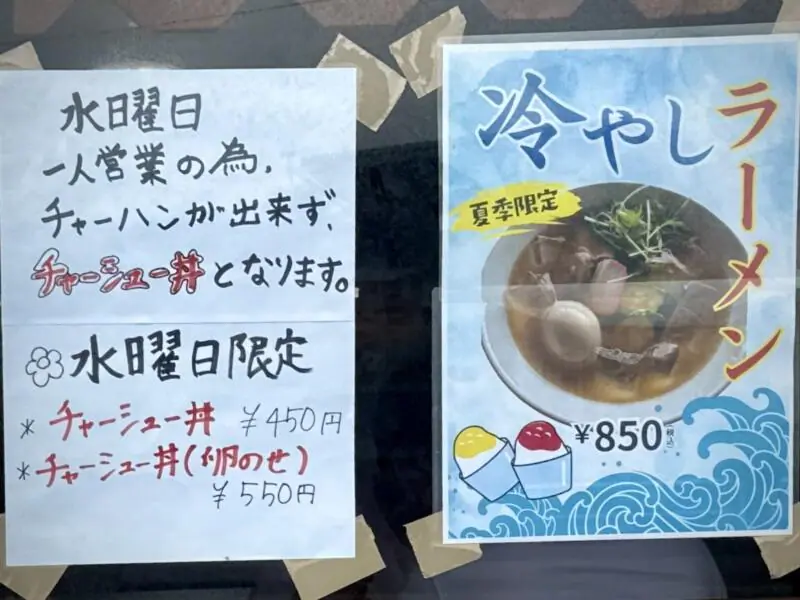 水曜日
一人営業の為、
チャーハンが出来ず、
チャーシュー丼となります。
水曜日限定
* チャーシュー丼 ¥450円
* チャーシュー丼(卵のせ)
¥550円
冷やし
ラーメン
夏季限定
¥850税込